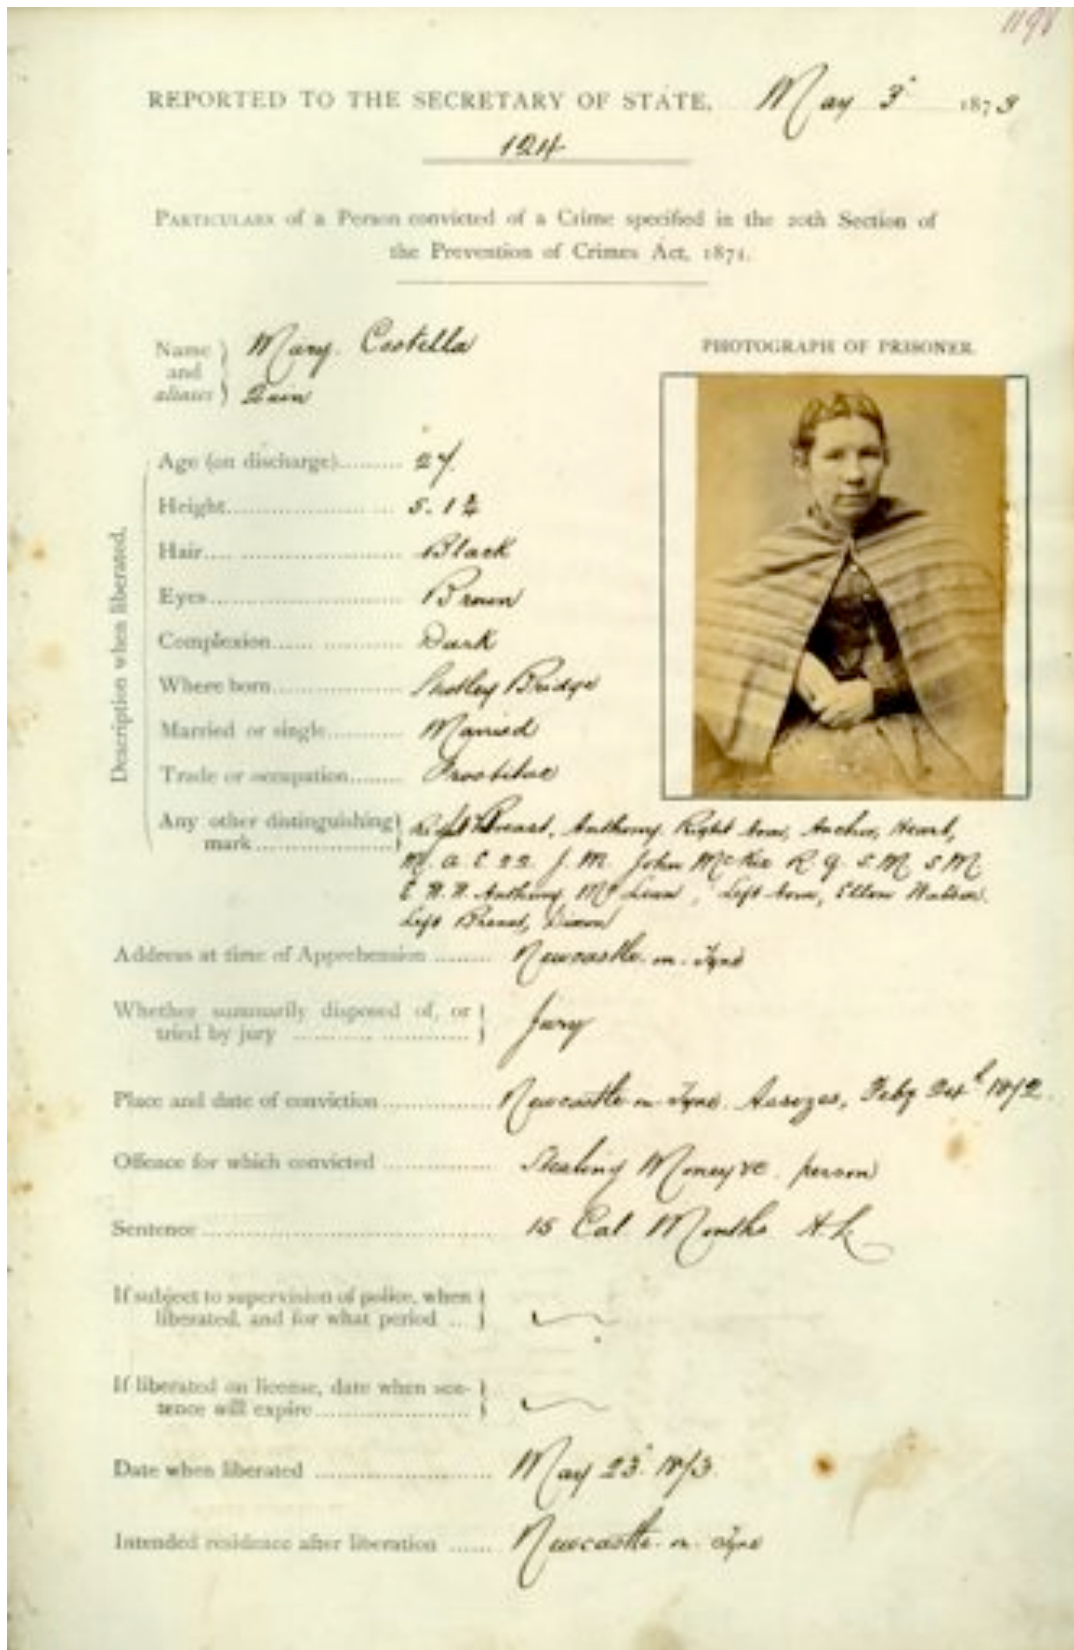 1198
REPORTED TO THE SECRETARY OF STATE, May 3d 1873
124
PARTICULARS of a Person convicted of a Crime specified in the 20th Section of
the Prevention of Crimes Act, 1871.
Name and aliases } Mary Costella
Quin
PHOTOGRAPH OF PRISONER.
Description when liberated.
Age (on discharge)......... 27
Height........................ 5. 1
Hair.... ........................ Black
Eyes............................... Brown
Complexion...... ............. Dark
Where born................... Shotley Bridge
Married or single........... Married
Trade or occupation........ Prostitue
Any other distinguishing mark.................. } Right Breast, Anthony Right Arm, Anchor, Heart,
M. A. C. 22 J. M. John McKie R. G. S. M S M
E W. H. Anthony Mc Lean, Left Arm, Ellen Watson.
Left Breast, Dixon
Address at time of Apprehension ......... Newcastle-on-Tyne
Whether summarily disposed of, or tried by jury ............ ............. } Jury
Place and date of conviction............... Newcastle-on-Tyne Assizes, Feby 24th 1872
Offence for which convicted ............... Stealing Money person
Sentence ....................................... 15 Cal Months H L
If subject to supervision of police, when
liberated, and for what period ... }
If liberated on license, date when sen-
tence will expire..................... }
Date when liberated ........................ May 23d 1873
Intended residence after liberation ...... Newcastle-on-Tyne